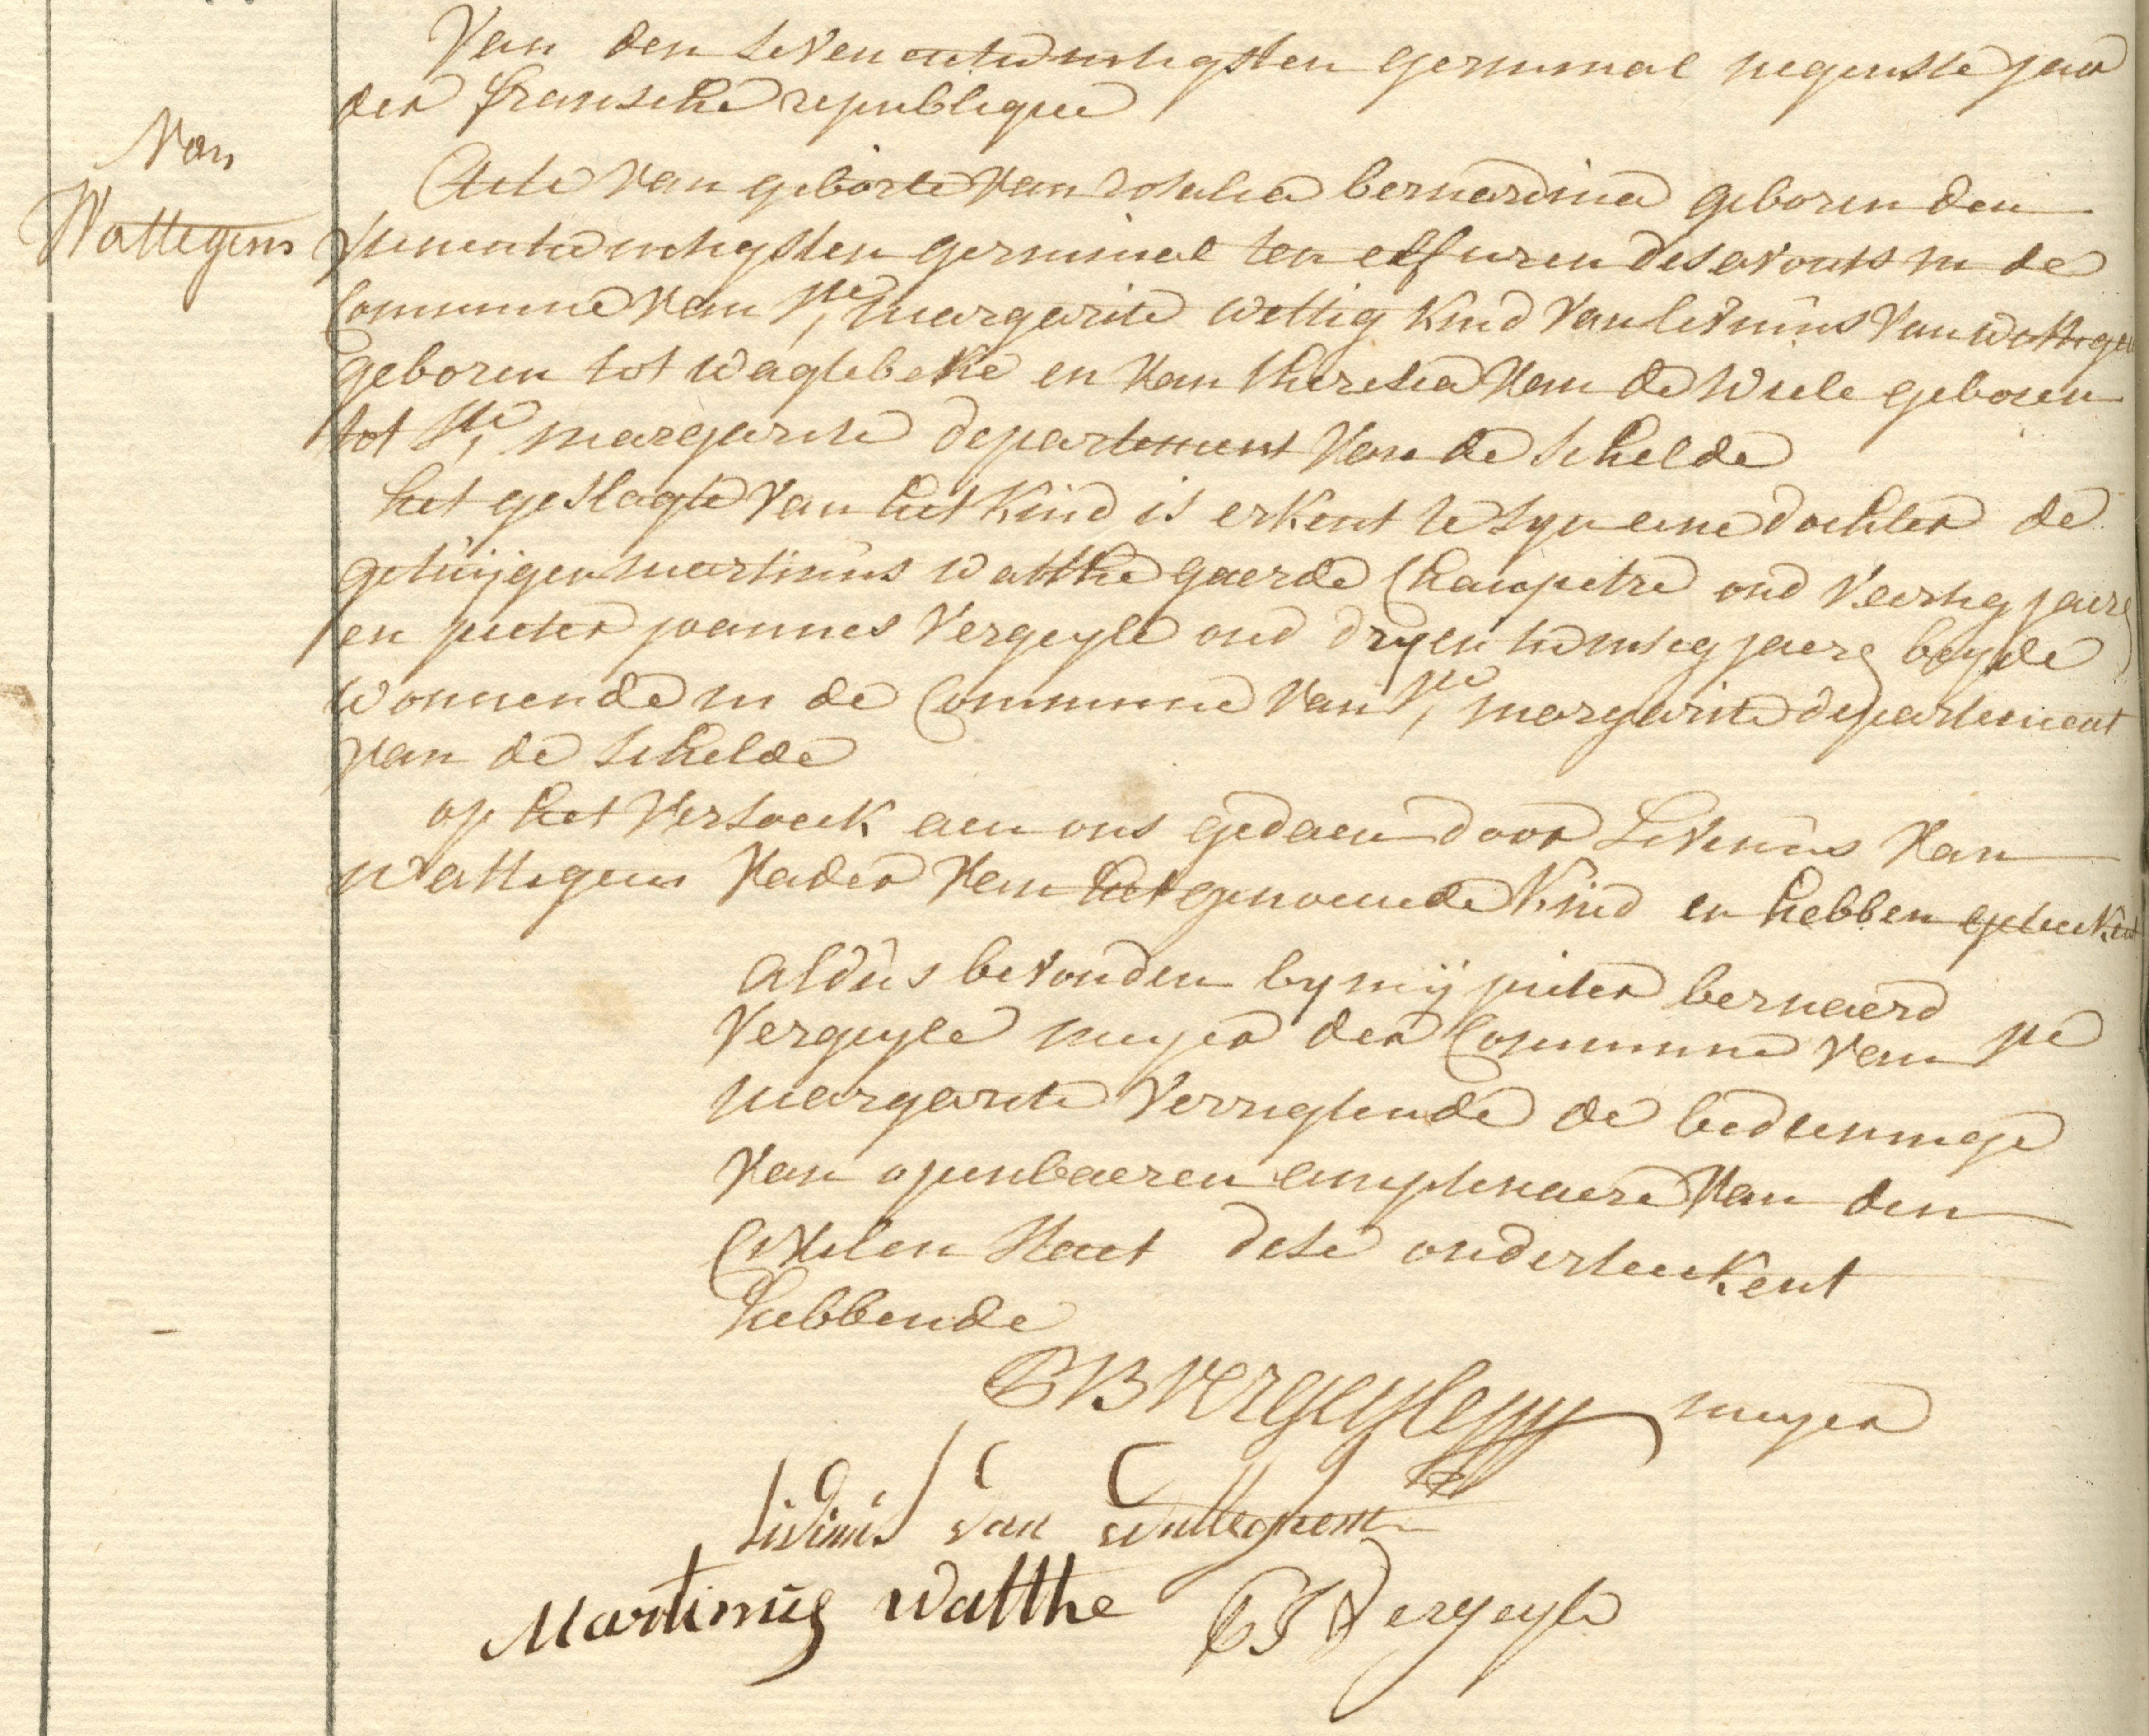 Van
Wattegem
Van den seven entwintigsten germinal negenste jaer
der fransche republique
Acte van geborte van rosalia bernardina geboren den
vierentwintigsten germinal ten elf uren des avonts in de
Commune van Ste, margarite wettig kind van livinus van wattegem
geboren tot wagtebeke en van theresia van de Wiele geboren
tot Ste, margarite departement van de schelde
het geslagte van het kind is erkent te syn eene dochter de
getuijgen martinus watthe gaerde Champetre oud veertig jaere
en pieter joannes Vergeyle oud dryentwintig jaere beyde
wonnende in de Commune van Ste, margarite departement
van de schelde
op het versoeck aen ons gedaen door Livinus Van
Wattegem vader van het genoemde kind en hebben geteekent
Aldus bevonden by mij pieter bernaerd
Vergeyle meyer der Commune van Ste
margarite verrigtende de bedieninge
van openbaeren amptenaere van den
Civilen staet dese onderteekent
hebbende
PB Vergeyle meyer
Livinus van Watteghem
Martinus watthe PJ Vergeyle